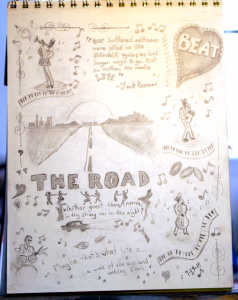 "Our battered suitcases
were piled on the
sidewalk again; we had
longer ways to go. But
no matter, the road is
LIFE"
- Jack Kerouac
BEAT
THE ROAD
Whither goest thou, America,
in thy shiny car in the night?
Maybe that's what life is...
a wink of the eye and
winking stars.